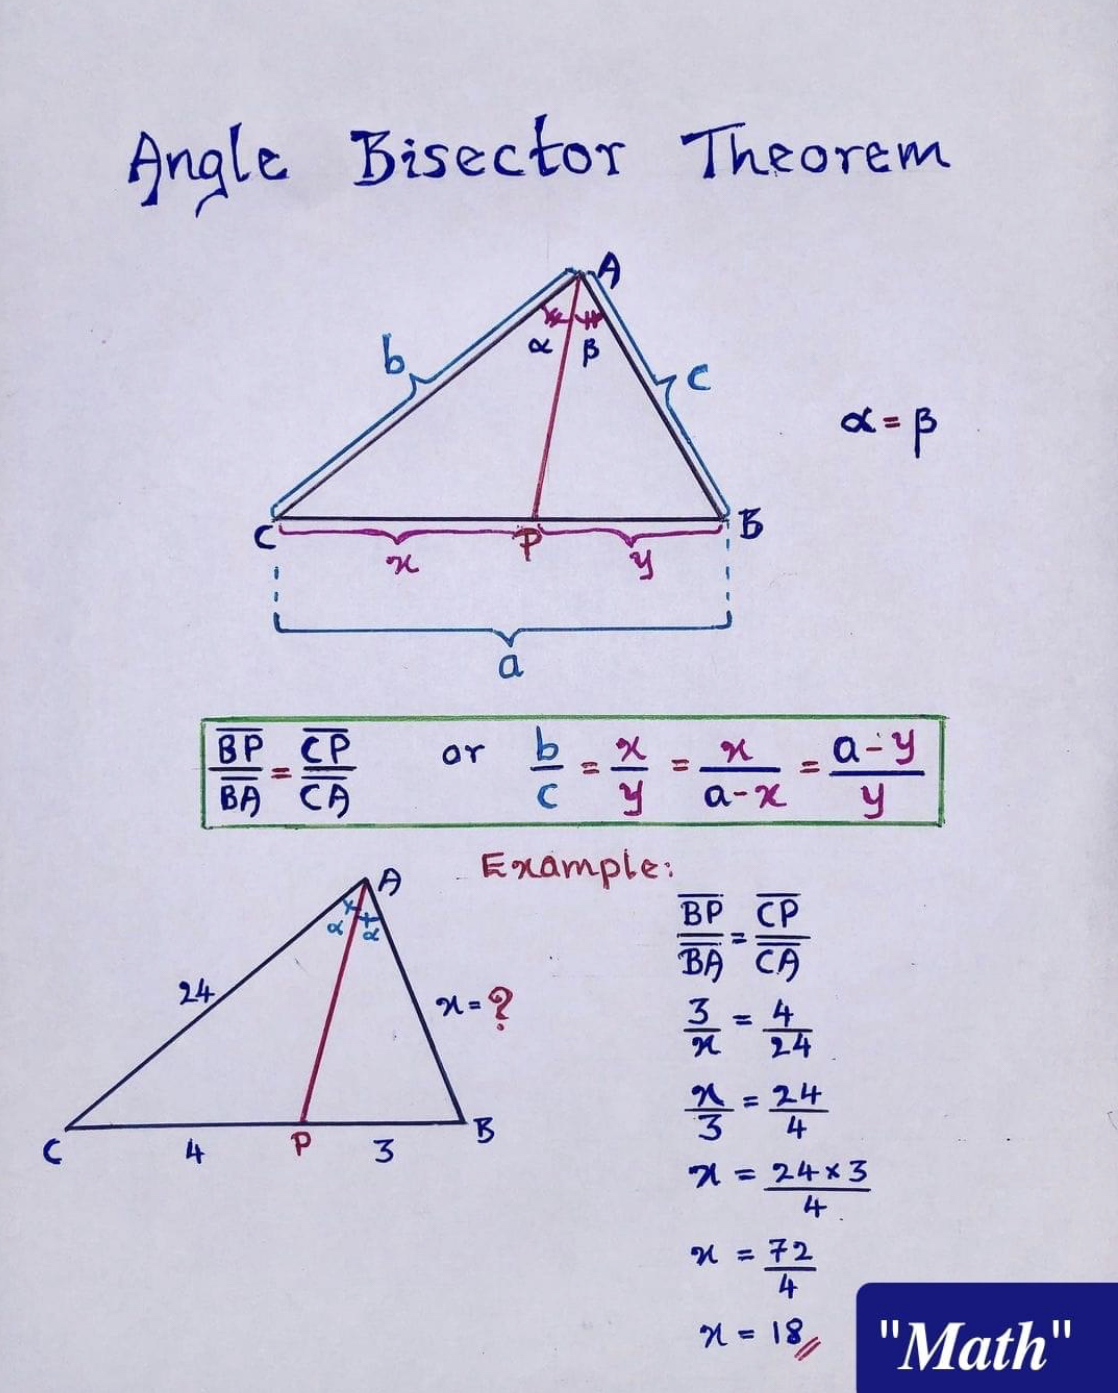 Angle Bisector Theorem
A
α β
b
c
α = β
C P B
x y
a
BP/BA = CP/CA or b/c = x/y = x/a-x = a-y/y
Example:
A
α α
24
x = ?
C P B
4 3
BP/BA = CP/CA
3/x = 4/24
x/3 = 24/4
x = 24×3/4
x = 72/4
x = 18
"Math"